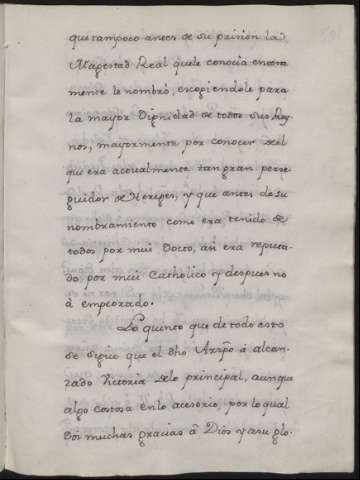 que tampoco antes de su prision la
Magestad Real que le conocia entera
mente le nombró, escogiendole para
la mayor Dignidad de todos sus Rey
nos, mayormente por conocer del
que era actualmente tan gran perse
guidor de Hereges, y que antes de su
nombramiento como era tenido de
todos por mui Docto, asi era reputa-
do por mui Catholico y despues no
à empeorado.
Lo quinto que de todo esto
se sigue que el dho Arzpo à alcan-
zado Victoria delo principal, aunque
algo costosa enlo acesorio, por lo qual
doi muchas gracias à Dios y asu glo-